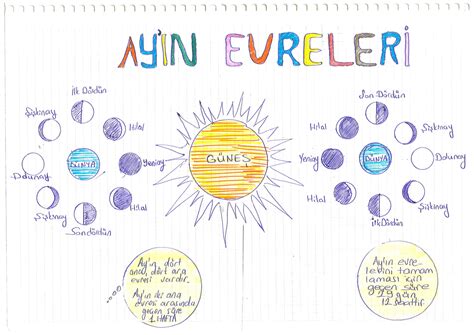 AY'IN EVRELERİ
İlk Dördün
Şişkinay
Hilal
Dolunay
DÜNYA
Yeniay
Şişkinay
Hilal
Sondördün
GÜNEŞ
Son Dördün
Hilal
Şişkinay
Yeniay
DÜNYA
Dolunay
Hilal
Şişkinay
İlkDördün
Ay'ın dört
ana, dört ara
evresi vardır.
Ay'ın iki ana
evresi arasında
geçen süre
1 HAFTA
Ay'ın evre-
lerini tamam
laması için
geçen süre
29 gün
12 saattir